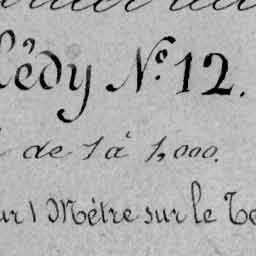 lédy N.º 12.
de 1 à 1,000.
ur 1 Mètre sur le Te